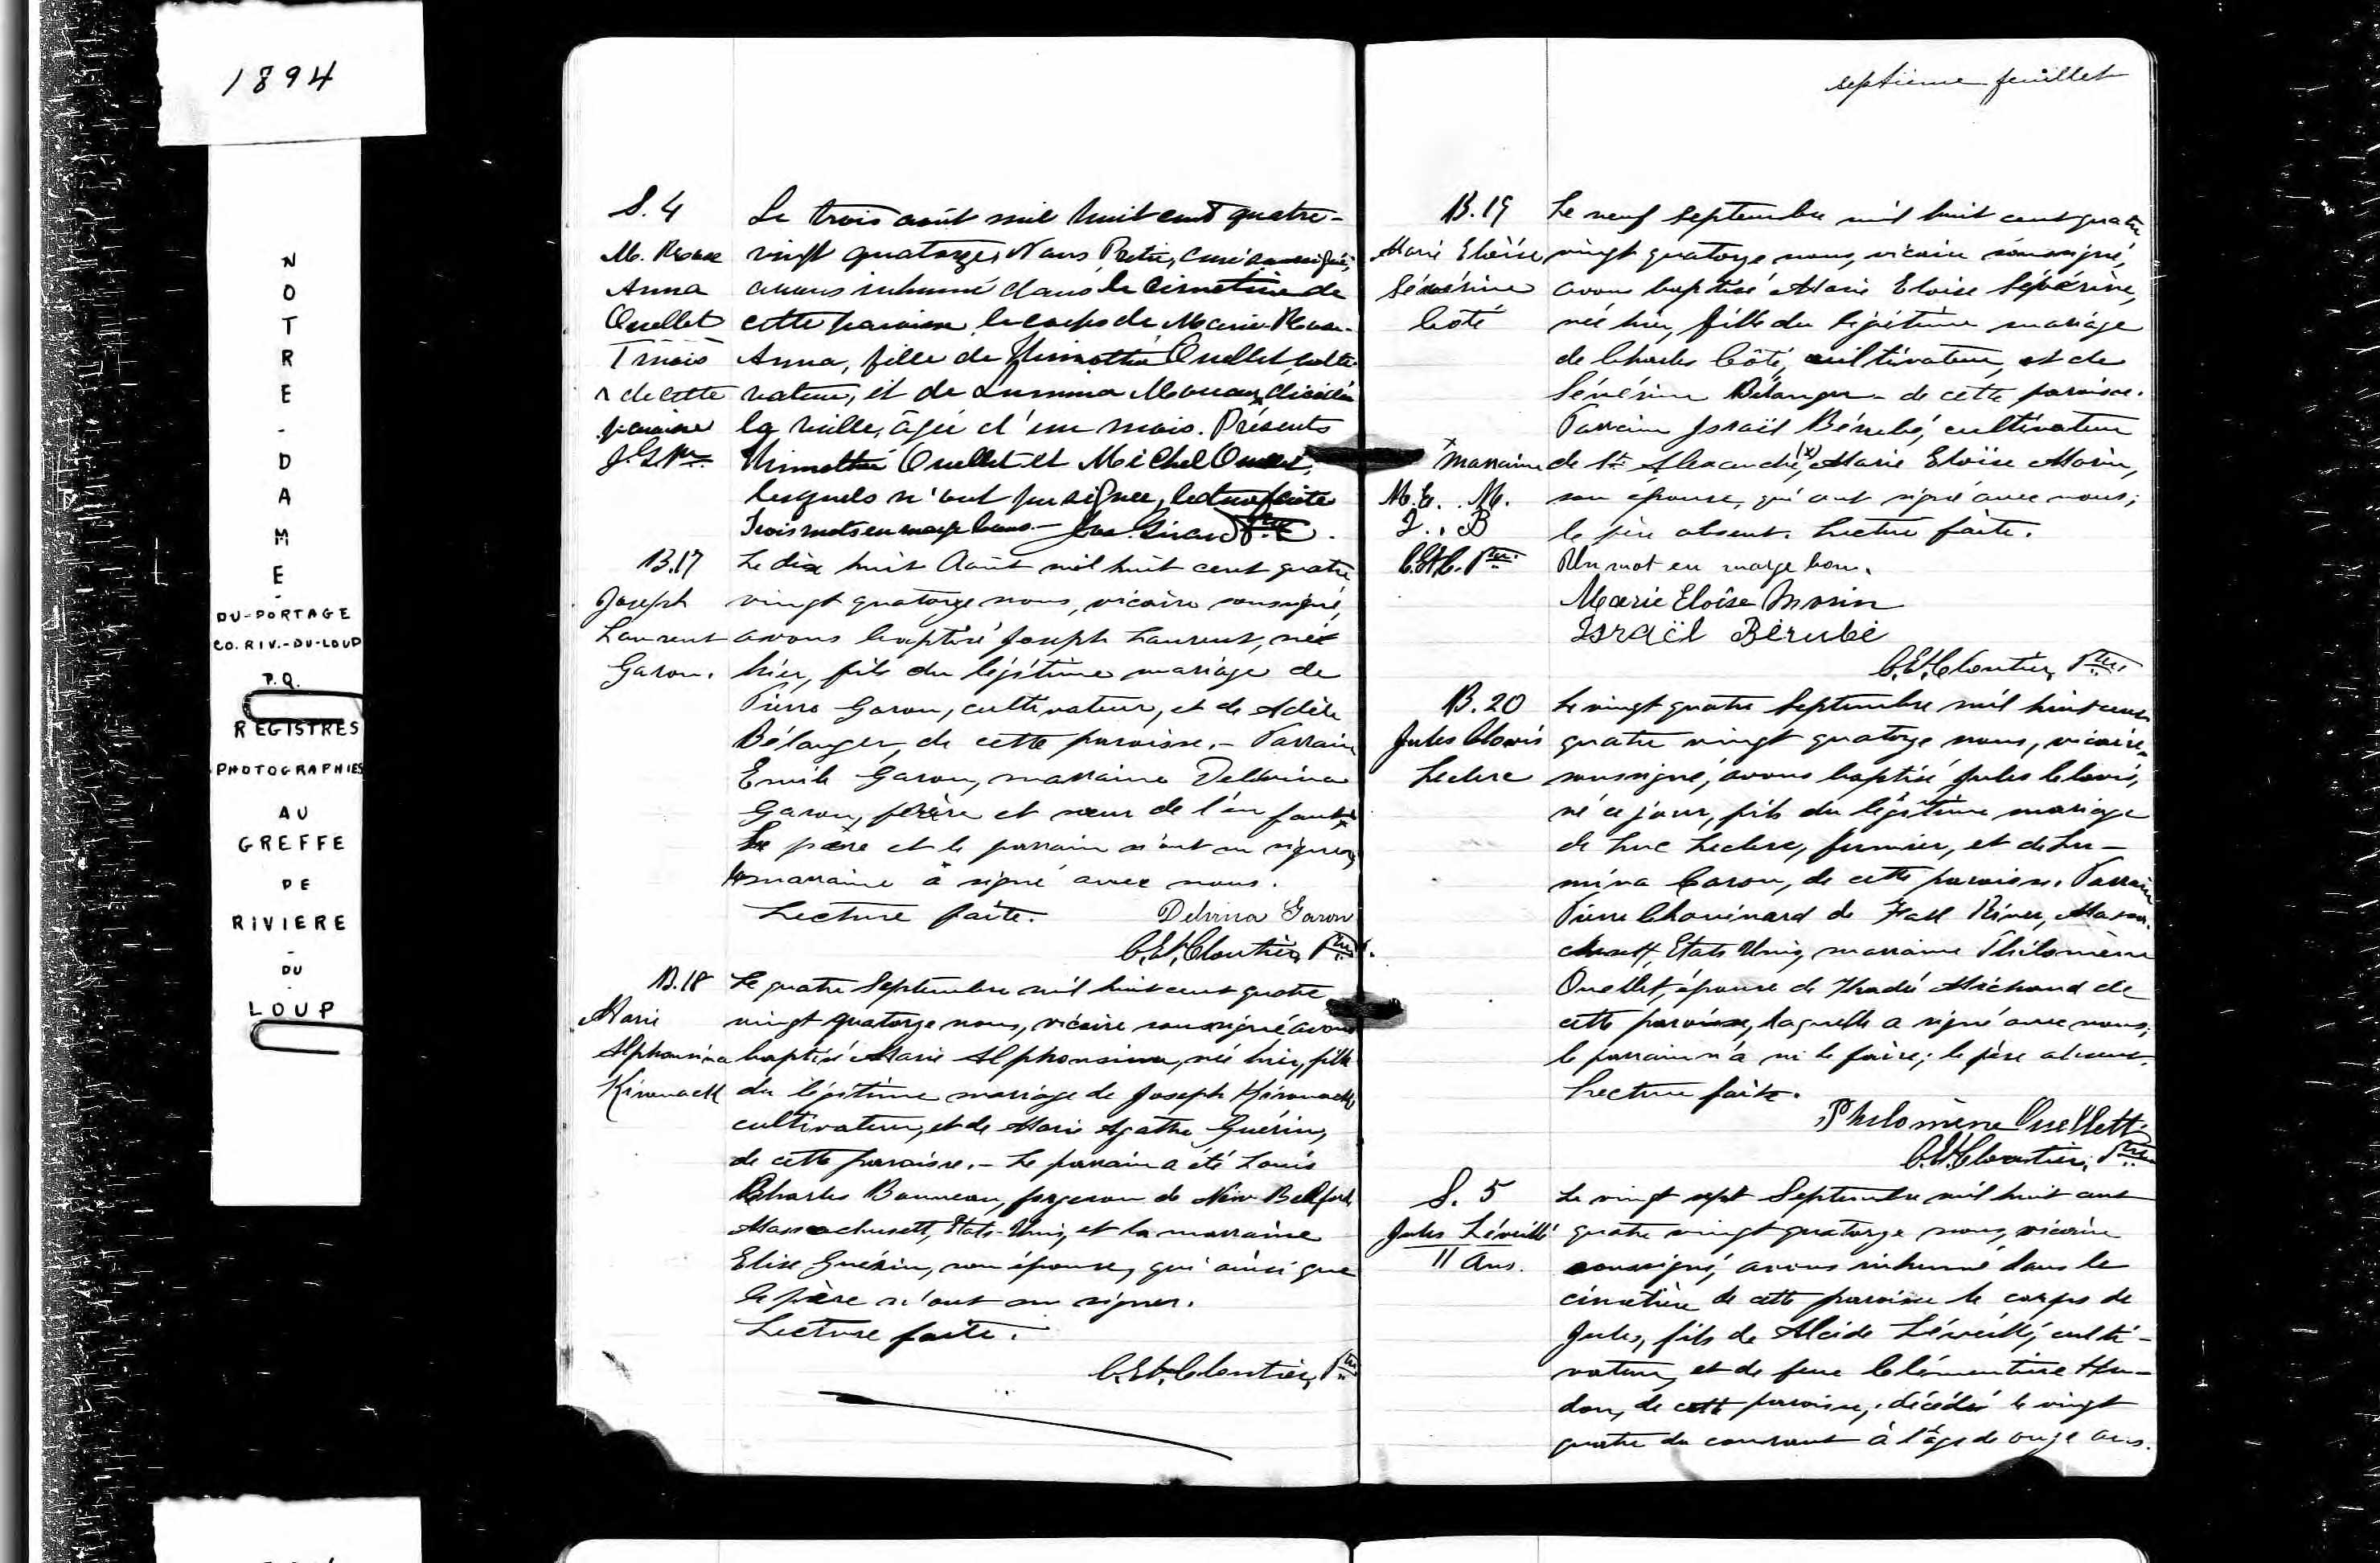 1894
NOTRE-DAME-
DU-PORTAGE
CO. RIV.-DU-LOUP
P.Q.
REGISTRES
PHOTOGRAPHIES
AU
GREFFE
DE
RIVIERE
-
DU
-
LOUP
S. 4
M. Rose
Anna
Ouellet
1 mois
^ de cette
paroisse
J. G. Ptre
Le trois août mil huit cent quatre-
vingt quatorze, Nous Prêtre, curé soussigné,
avons inhumé dans le cimetière de
cette paroisse le corps de Marie-Rose-
Anna, fille de Thimothé Ouellet, culti-
vateur, et de Lumina Moreau, ^ décédée
la veille, âgée d'un mois. Présents
Thimothé Ouellet et Michel Ouellet,
lesquels n'ont pu signer, lecture faite
Trois mots en marge bons.- Jos. Girard Ptre
B.17
Joseph
Laurent
Garon.
Le dix huit Août mil huit cent quatre
vingt quatorze nous, vicaire soussigné,
avons baptisé Joseph Laurent, né
hier, fils du légitime mariage de
Pierre Garon, cultivateur, et de Adèle
Bélanger, de cette paroisse.- Parrain
Emile Garon, marraine Delvina
Garon, frère et sœur de l'enfant.
Le père et le parrain n'ont su signer,
la marraine a signé avec nous.
Lecture faite.
Delvina Garon
C. Ed. Cloutier, Ptre.
B.18
Marie
Alphonsina
Kirouack
Le quatre Septembre mil huit cent quatre
vingt quatorze nous, vicaire soussigné avons
baptisé Marie Alphonsina, née hier, fille
du légitime mariage de Joseph Kirouack
cultivateur, et de Marie Agathe Guérin,
de cette paroisse.- Le parrain a été Louis
Charles Bonneau, forgeron de New Bedford
Massachusett, Etats-Unis, et la marraine
Elise Guérin, son épouse, qui ainsi que
le père n'ont su signer.
Lecture faite.
C. Ed. Cloutier, Ptre
septième feuillet
B.19
Marie Eloïse
Sévérine
Côté
x marraine
M. E. M.
I. B
C.E.C. Ptre
Le neuf Septembre mil huit cent quatre
vingt quatorze nous, vicaire soussigné,
avons baptisé Marie Eloïse Sévérine,
née hier, fille du légitime mariage
de Charles Côté, cultivateur, et de
Sévérine Bélanger - de cette paroisse.
Parrain Israël Bérubé, cultivateur
de St Alexandre, (x) Marie Eloïse Morin,
son épouse, qui ont signé avec nous;
le père absent. Lecture faite.
Un mot en marge bon.
Marie Eloïse Morin
Israël Bérubé
C. Ed. Cloutier, Ptre.
B.20
Jules Clovis
Leclerc
Le vingt quatre Septembre mil huit cent
quatre vingt quatorze nous, vicaire
soussigné, avons baptisé Jules Clovis,
né ce jour, fils du légitime mariage
de Luc Leclerc, fermier, et de Lu-
mina Caron, de cette paroisse. Parrain
Pierre Chouinard de Fall River, Massa-
chusett, Etats Unis, marraine Philomène
Ouellet, épouse de Thadé Michaud de
cette paroisse, laquelle a signé avec nous;
le parrain n'a su le faire; le père absent.
Lecture faite.
Philomène Ouellette
C. Ed. Cloutier, Ptre
S. 5
Jules Léveillé
11 Ans.
Le vingt sept Septembre mil huit cent
quatre vingt quatorze nous, vicaire
soussigné, avons inhumé dans le
cimetière de cette paroisse le corps de
Jules, fils de Alcide Léveillé, culti-
vateur, et de feue Clémentine Hu-
don, de cette paroisse, décédé le vingt
quatre du courant à l'âge de onze ans.